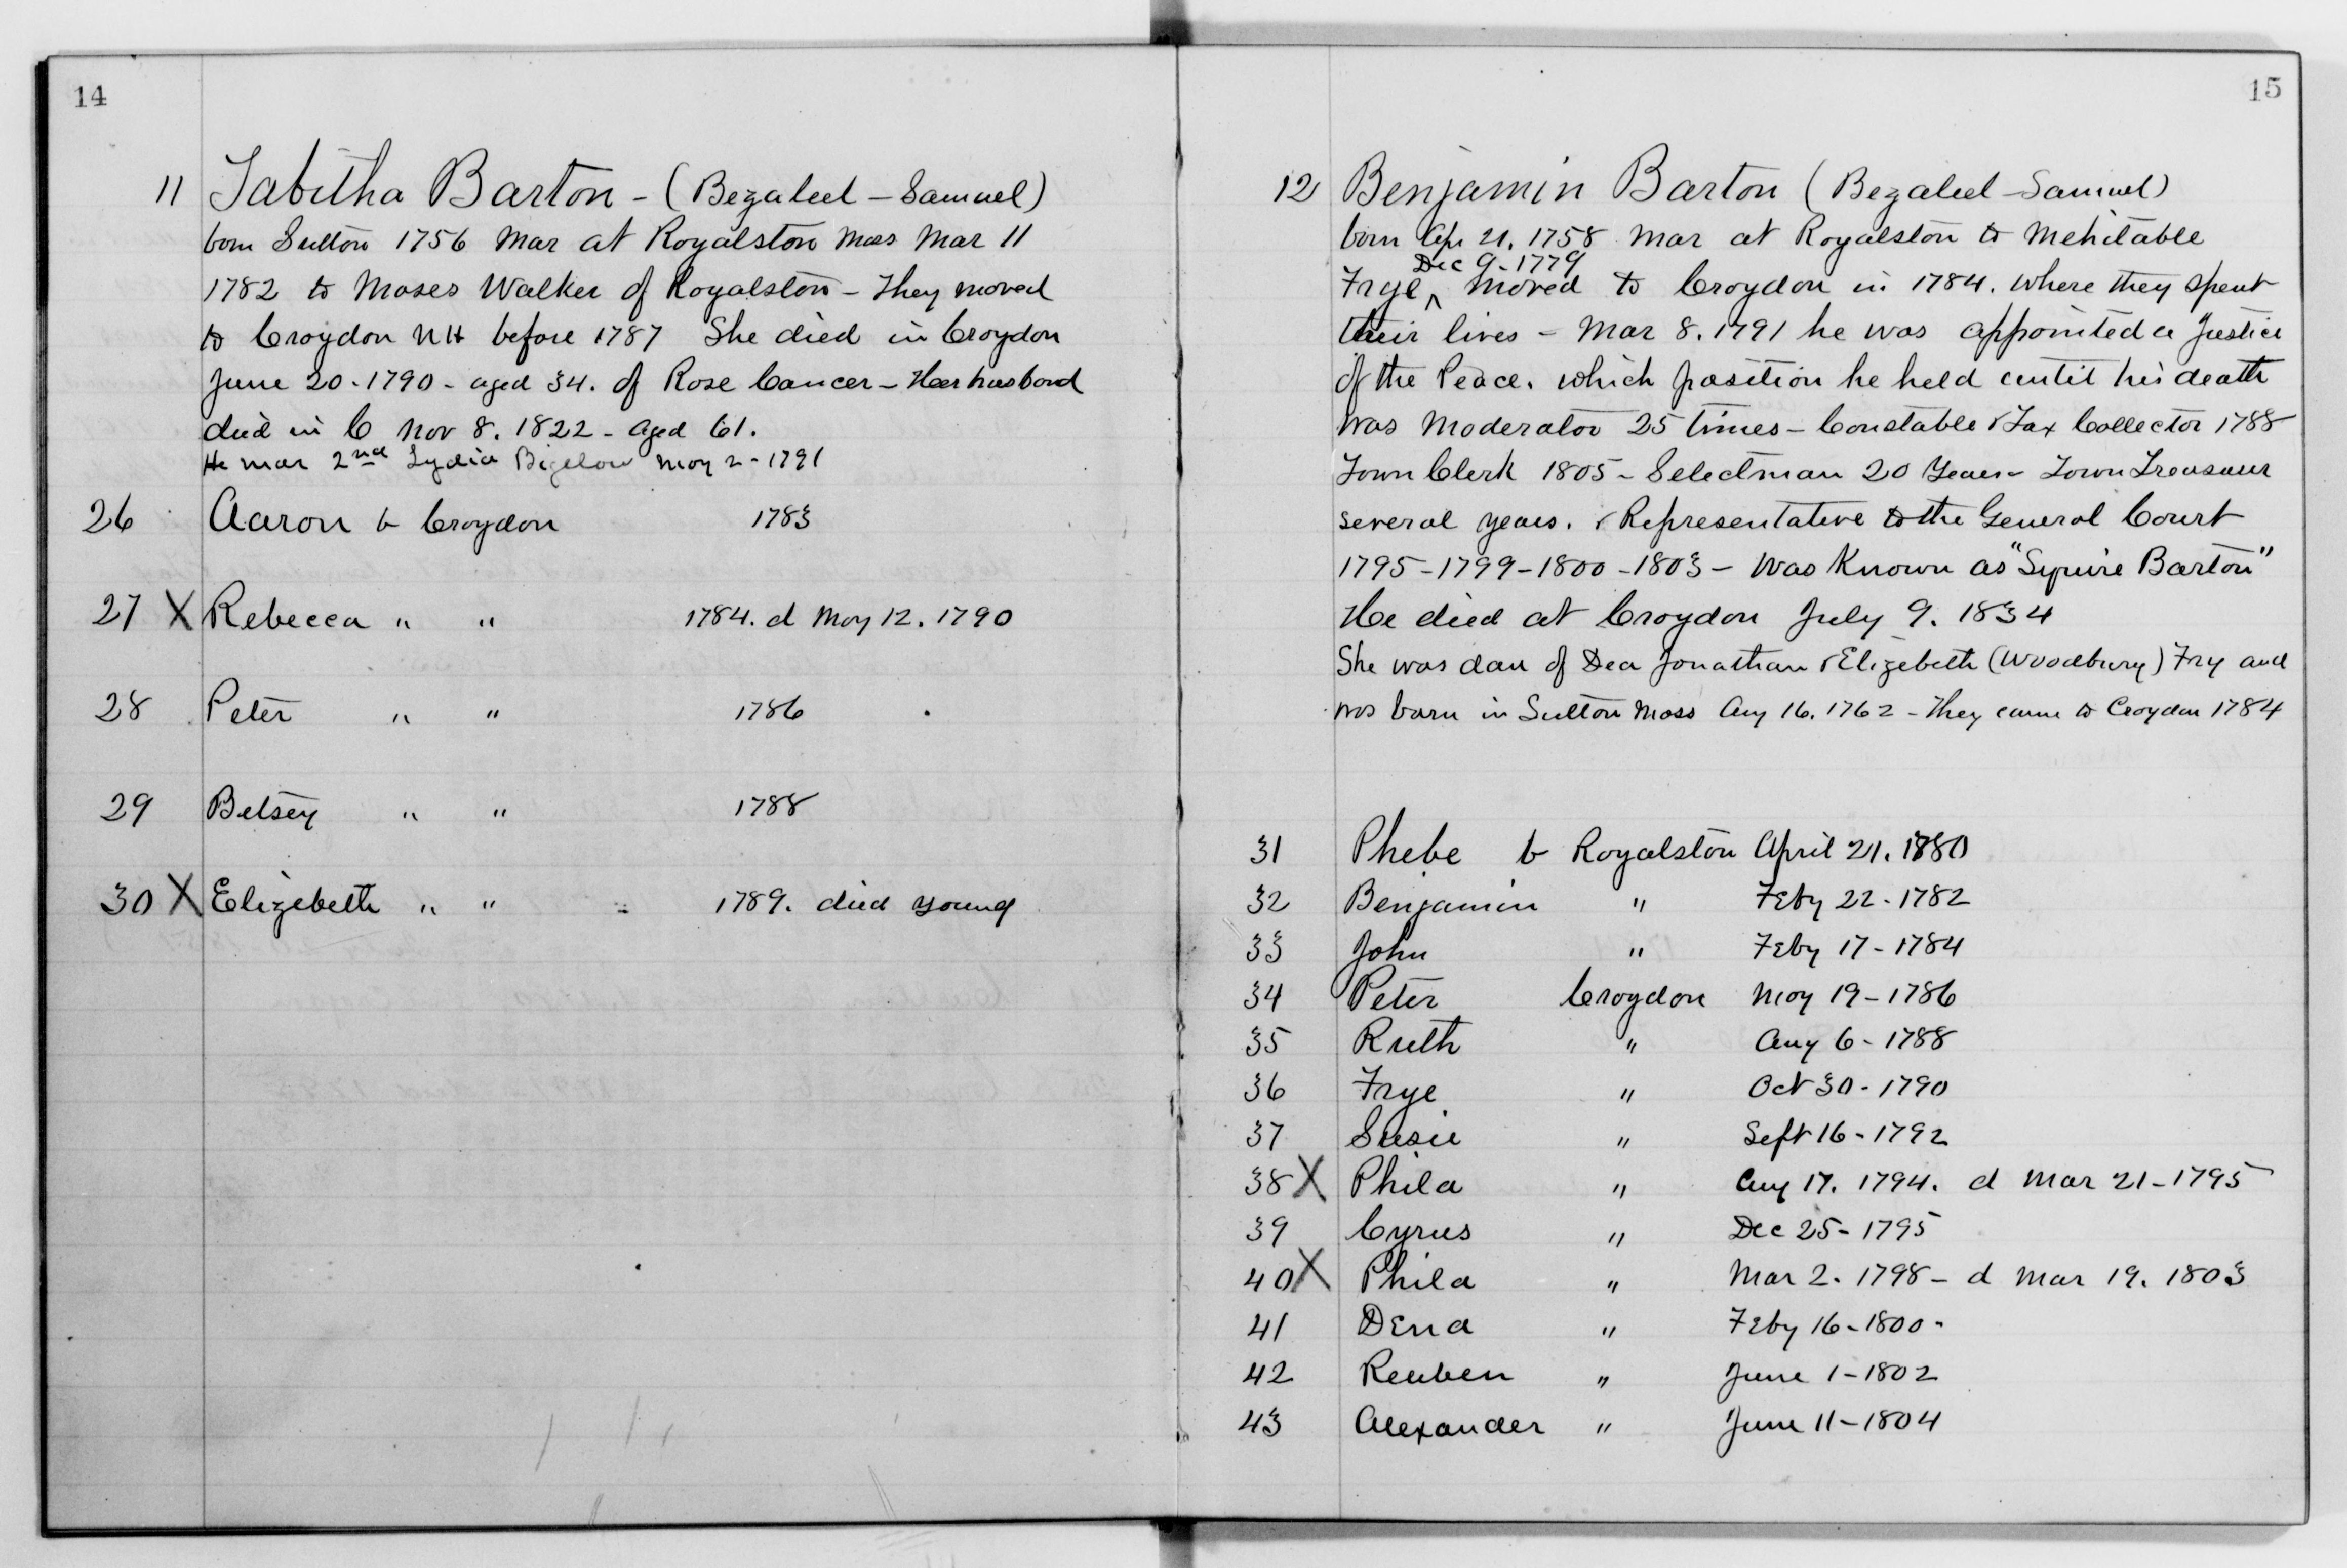 14
11 Tabitha Barton - (Bezaleel - Samuel)
born Sutton 1756 Mar at Royalston Mass Mar 11
1782 to Moses Walker of Royalston - They moved
to Croydon NH before 1787 She died in Croydon
June 20 - 1790 - aged 34. of Rose Cancer - Her husband
died in C Nov 8. 1822 - aged 61.
He mar 2nd Lydia Bigelow May 2 - 1791
26 Aaron b Croydon 1783
27 X Rebecca " " 1784. d May 12. 1790
28 Peter " " 1786
29 Betsey " " 1788
30 X Elizebeth " " 1789. died young
15
12 Benjamin Barton (Bezaleel - Samuel)
born Apr 21. 1758 Mar at Royalston to Mehitable
Dec 9 - 1779
Frye ^ Moved to Croydon in 1784. where they spent
their lives - Mar 8. 1791 he was appointed a Justice
of the Peace. which position he held until his death
was Moderator 25 times - Constable & Tax Collector 1788
Town Clerk 1805 - Selectman 20 Years - Town Treasurer
several years. & Representative to the General Court
1795 - 1799 - 1800 - 1803 - Was Known as "Squire Barton"
He died at Croydon July 9. 1834
She was dau of Dea Jonathan & Elizebeth (Woodbury) Fry and
was born in Sutton Mass Aug 16. 1762 - They came to Croydon 1784
31 Phebe b Royalston April 21. 1780
32 Benjamin " Feby 22 - 1782
33 John " Feby 17 - 1784
34 Peter Croydon May 19 - 1786
35 Ruth " Aug 6 - 1788
36 Frye " Oct 30 - 1790
37 Susie " Sept 16 - 1792
38 X Phila " Aug 17. 1794. d Mar 21 - 1795
39 Cyrus " Dec 25 - 1795
40 X Phila " Mar 2. 1798 - d Mar 19. 1803
41 Dena " Feby 16 - 1800 -
42 Reuben " June 1 - 1802
43 Alexander " June 11 - 1804